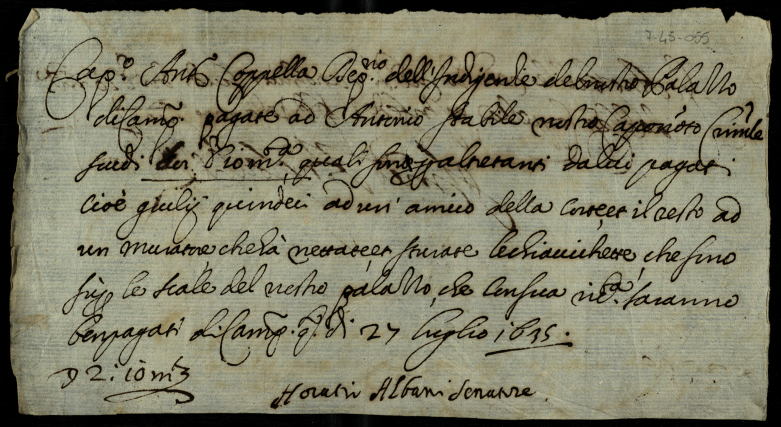 7-45-055
Cap.º Ant.º Coppella Dep.rio dell'Indigende del nostro Palazzo
di Camp.º pagate ad Antonio Stabile nostro Capo Not.º Crim.le
scudi doi m.ta quali sono p altretanti da lui pagati
cioè giulij quindeci ad un' amico della corte, et il resto ad
un muratore che hà nettate, et sturate le chiavichette, che sono
sù p le scale del nostro palazzo, che con sua ric.ta saranno
ben pagati di Camp.º q.º dì 27 luglio 1655.
2: 10 m.ta
Horatio Albani Senatore